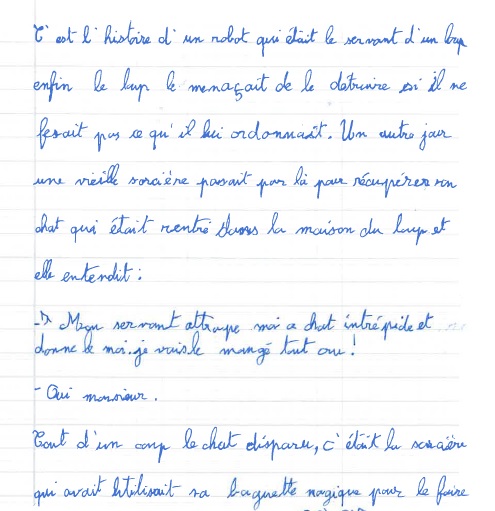 C'est l'histoire d'un robot qui était le servant d'un loup
enfin le loup le menaçait de le détruire si il ne
fesait pas ce qu'il lui ordonnait. Un autre jour
une vieille sorcière passait par là pour récupérer son
chat qui était rentré dans la maison du loup et
elle entendit :
-> Mon servant attrape moi ce chat intrépide et
donne le moi. je vais le mangé tout cru !
- Oui monsieur.
Tout d'un coup le chat disparu, c'était la sorcière
qui avait utilisait sa baguette magique pour le faire